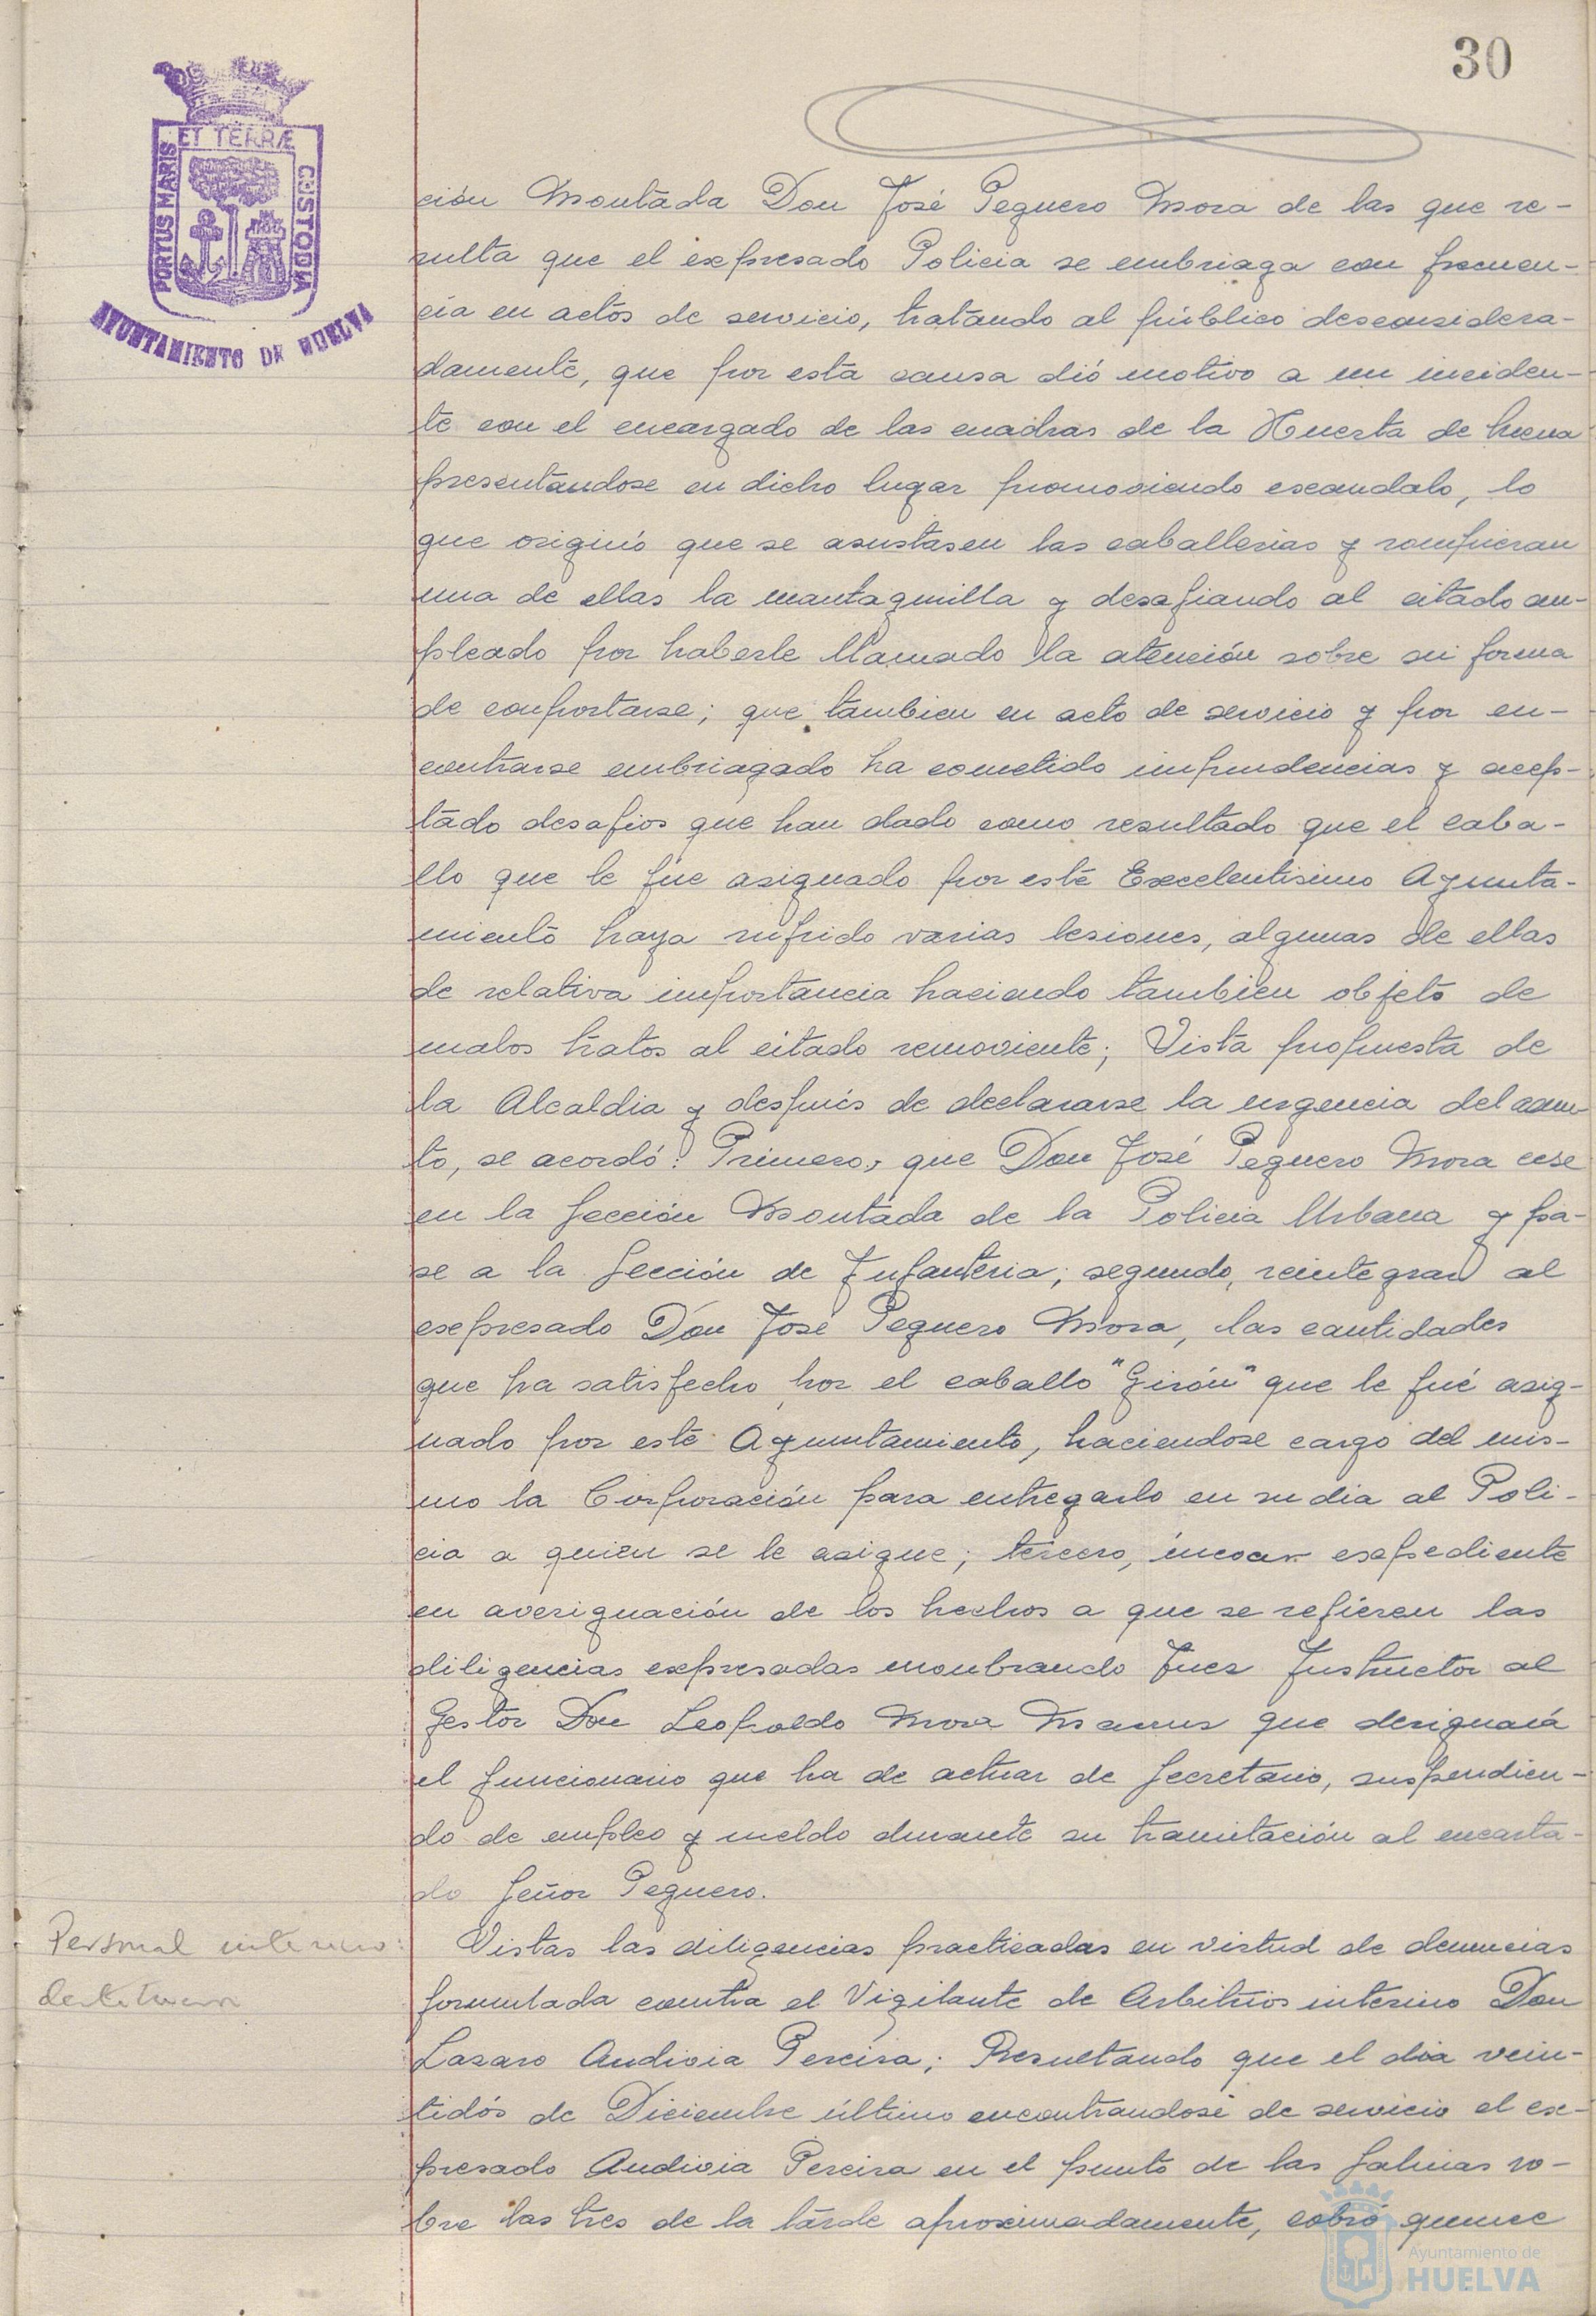 30
PORTUS MARIS
ET TERRÆ
CUSTODIA
AYUNTAMIENTO DE HUELVA
ción Montada Don José Peguero Mora de las que re-
sulta que el expresado Policia se embriaga con frecuen-
cia en actos de servicio, tratando al público desconsidera-
damente, que por esta causa dió motivo a un inciden-
te con el encargado de las cuadras de la Huerta de Mena
presentandose en dicho lugar promoviendo escandalo, lo
que originó que se asustasen las caballerias y rompieran
una de ellas la mantaquilla y desafiando al citado em-
pleado por haberle llamado la atención sobre su forma
de comportarse; que tambien en acto de servicio y por en-
contrarse embriagado ha cometido imprudencias y acep-
tado desafios que han dado como resultado que el caba-
llo que le fue asignado por este Excelentisimo Ayunta-
miento haya sufrido varias lesiones, algunas de ellas
de relativa importancia haciendo tambien objeto de
malos tratos al citado semoviente; Vista propuesta de
la Alcaldia y después de declararse la urgencia del asun-
to, se acordó: Primero, que Don José Peguero Mora cese
en la Sección Montada de la Policia Urbana y pa-
se a la Sección de Infanteria; segundo, reintegrar al
expresado Don José Peguero Mora, las cantidades
que ha satisfecho por el caballo "Girón" que le fué asig-
nado por este Ayuntamiento, haciendose cargo del mis-
mo la Corporación para entregarlo en su dia al Poli-
cia a quien se le asigne; tercero, incoar expediente
en averiguación de los hechos a que se refieren las
diligencias expresadas nombrando Juez Instructor al
Gestor Don Leopoldo Mora que designará
el funcionario que ha de actuar de Secretario, suspendien-
do de empleo y sueldo durante su tramitación al encarta-
do Señor Peguero.
Personal interino:
destitucion
Vistas las diligencias practicadas en virtud de denuncias
formulada contra el Vigilante de Arbitrios interino Don
Lazaro Audivia Pereira; Resultando que el dia vein-
tidós de Diciembre último encontrandose de servicio el ex-
presado Audivia Pereira en el punto de las Salinas so-
bre las tres de la tarde aproximadamente, cobró quince
Ayuntamiento de
HUELVA